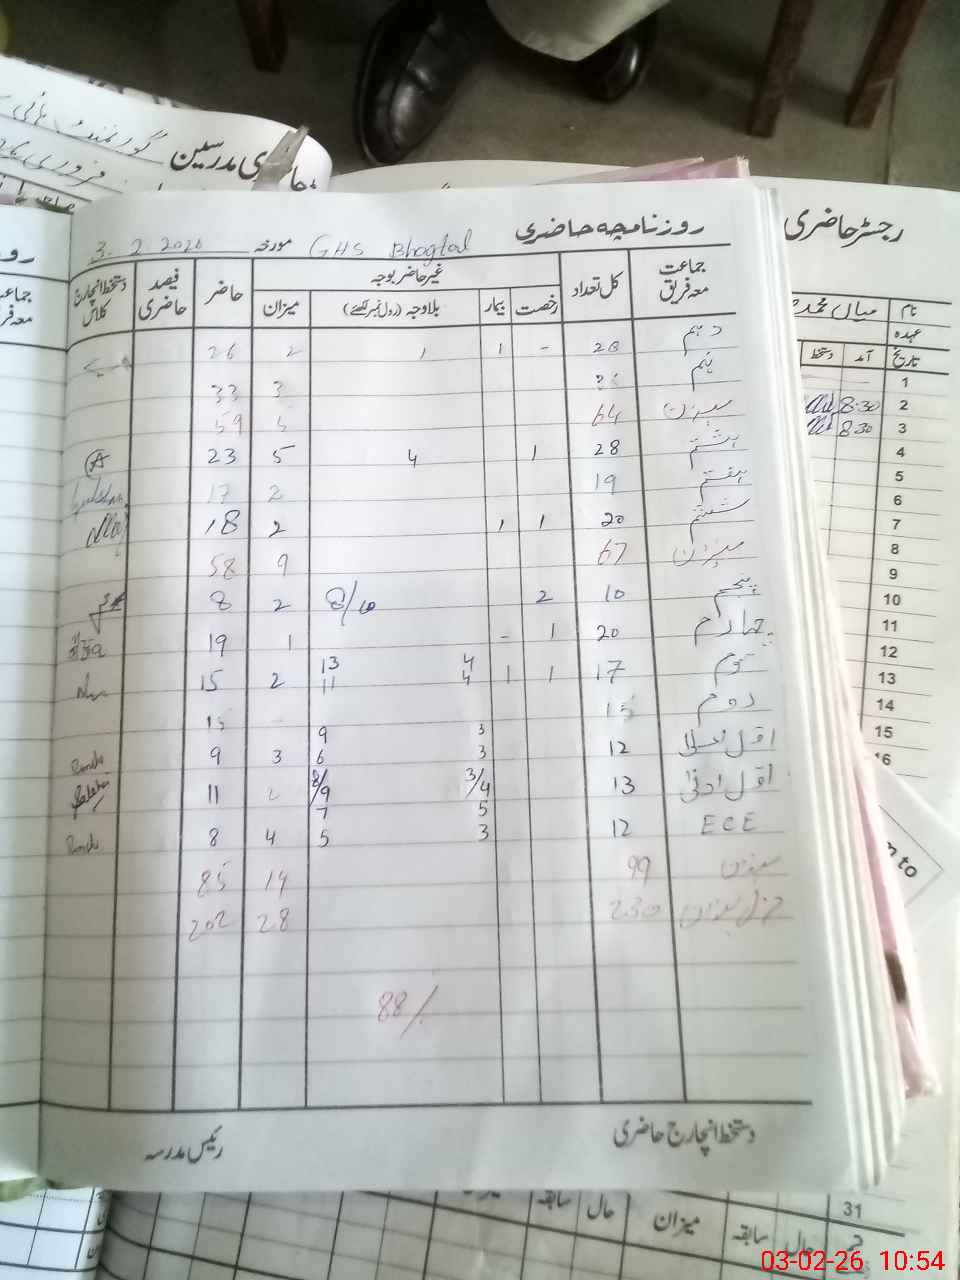 گورنمنٹ ہائی
حاضری مدرسین
فروری
روزنامچہ حاضری مورخہ GHS Bhogtal 3-2-2026
جماعت معہ فریق کل تعداد غیر حاضر بوجہ حاضر فیصد حاضری دستخط انچارج کلاس
رخصت بیمار بلاوجہ (رول نمبر لکھئے) میزان
دہم 28 - 1 1 2 26
نہم 3 33
میزان 64 5 59
ہشتم 28 1 4 5 23 A
ہفتم 19 2 17 Gulshan
ششم 20 1 1 2 18
میزان 67 9 58
پنجم 10 2 8/10 2 8
چہارم 20 1 - 1 19
سوم 17 1 1 4 4 13 11 2 15
دوم 15 - 15
اول اعلیٰ 12 3 3 9 6 3 9
اول ادنیٰ 13 3/4 8/9 2 11
ECE 12 5 3 7 5 4 8
میزان 99 14 85
کل میزان 230 28 202
88%
دستخط انچارج حاضری رئیس مدرسہ
رجسٹر حاضری
نام میاں محمد
عہدہ
تاریخ آمد دستخط
1
2 8:30
3 8:30
4
5
6
7
8
9
10
11
12
13
14
15
16
m to
31
حال سابقہ میزان حال سابقہ
03-02-26 10:54